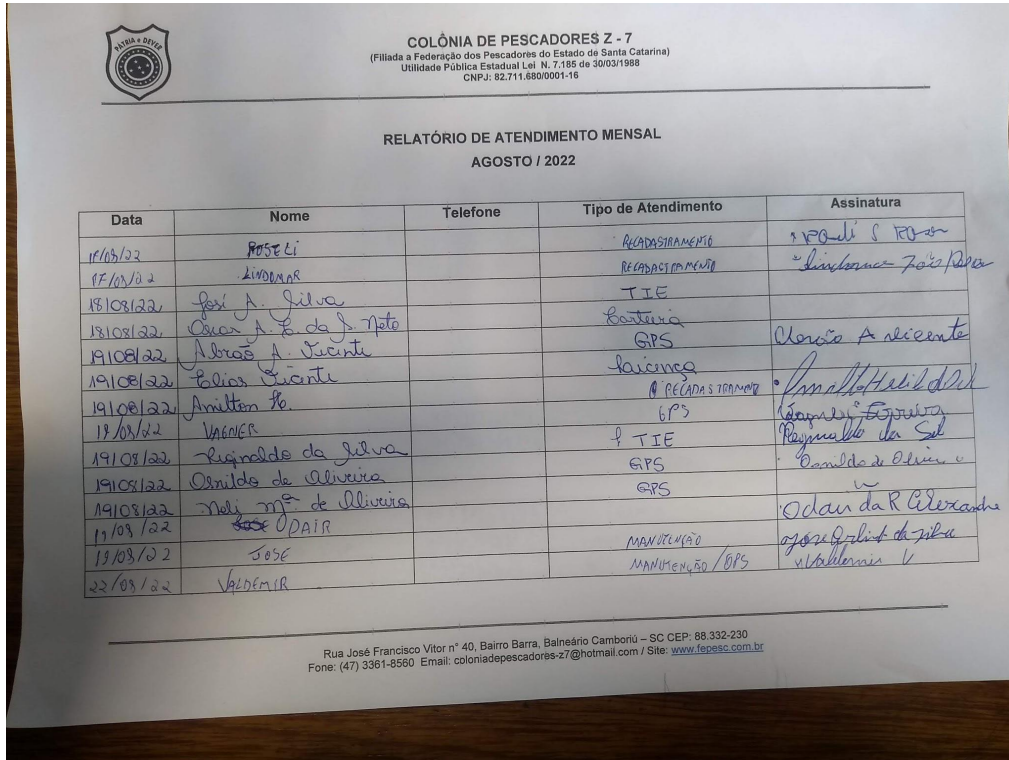 PÁTRIA e DEVER
COLÔNIA DE PESCADORES Z - 7
(Filiada a Federação dos Pescadores do Estado de Santa Catarina)
Utilidade Pública Estadual Lei N. 7.185 de 30/03/1988
CNPJ: 82.711.680/0001-16
RELATÓRIO DE ATENDIMENTO MENSAL
AGOSTO / 2022
Data Nome Telefone Tipo de Atendimento Assinatura
ROSELI RECADASTRAMENTO
17/08/22 LINDOMAR RECADASTRAMENTO
18/08/22 José A. Silva TIE
18/08/22 Oscar A. da S. Neto Carteira
19/08/22 Abraão A. Vicente GPS
19/08/22 Elias Vicente Licença
19/08/22 Amilton H. RECADASTRAMENTO
19/08/22 VAGNER GPS
19/08/22 Reginaldo da Silva TIE Reginaldo da Sil
19/08/22 Osnildo de Oliveira GPS Osnildo de
19/08/22 Neli Mª de Oliveira GPS
19/08/22 ODAIR Odair da R Alexandre
19/08/22 JOSE MANUTENÇÃO
22/08/22 VALDEMIR MANUTENÇÃO / GPS Valdemir V
Rua José Francisco Vitor n° 40, Bairro Barra, Balneário Camboriú – SC CEP: 88.332-230
Fone: (47) 3361-8560 Email: coloniadepescadores-z7@hotmail.com / Site: www.fepesc.com.br